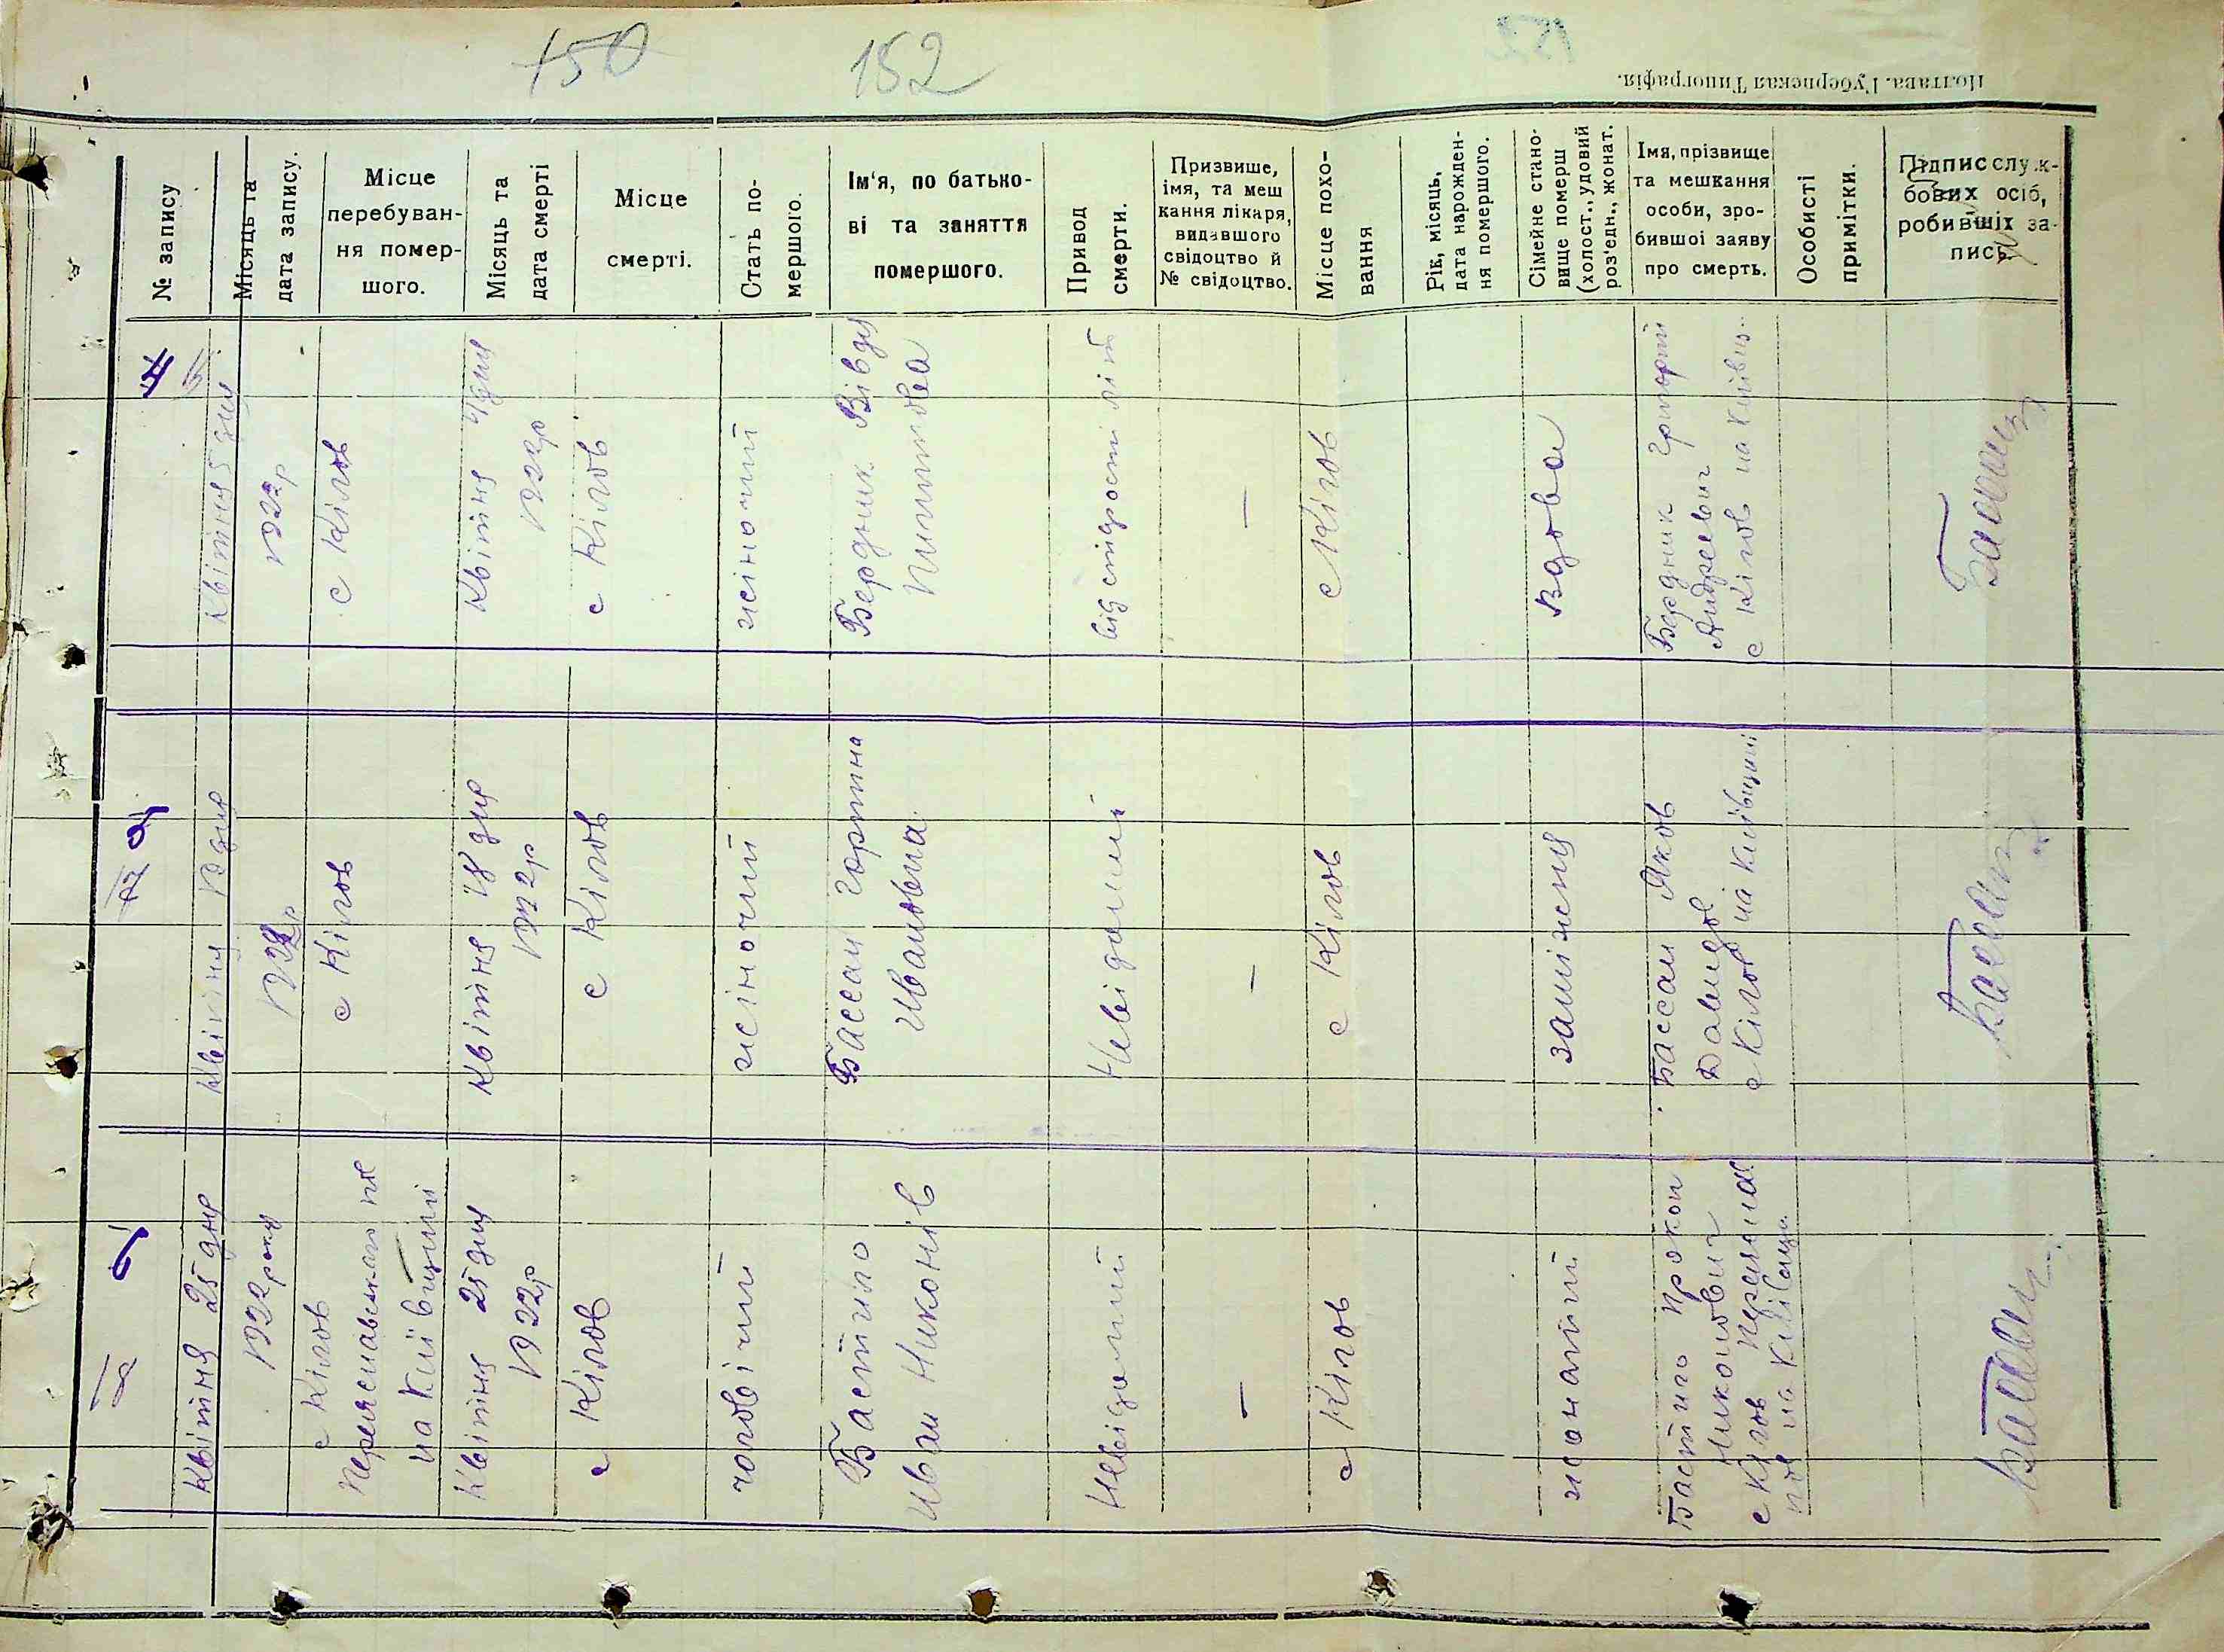 150
152
152
Полтава. Губернская Типографія.
№ запису
Місяць та
дата запису.
Місце
перебуван-
ня помер-
шого.
Місяць та
дата смерті
Місце
смерті.
Стать по-
мершого.
Ім'я, по батько-
ві та заняття
помершого.
Привод
смерти.
Призвище,
імя, та меш
кання лікаря,
видавшого
свідоцтво й
№ свідоцтво.
Місце похо-
вання
Рік, місяць,
дата нарожден-
ня помершого.
Сімейне стано-
вище померш
(холост., удовий
роз'едн., жонат.
Імя, прізвище
та мешкання
особи, зро-
бившоі заяву
про смерть.
Особисті
примітки.
Підпис служ-
бових осіб,
робивших за-
пись.
4
Квітня 5 дня
1922 р
с Кілов
Квітня 4 дня
1922 р
с Кілов
жіночий
Бердник Вівдя
від старости літ
—
с Кілов
Вдова
Бердник Григорій
Андреевич
с Кілов на Київщ.
5
Квітня 19 дня
1922 р
с Кілов
Квітня 18 дня
1922 р
с Кілов
жіночий
Бассан Горпина
Ивановна
Невідомий
—
с Кілов
заміжня
Бассан Яков
Давидов
с Кілов на Київщині
6
Квітня 25 дня
1922 року
с Кілов
Переяславського пов
на Київщині
Квітня 25 дня
1922 р
с Кілов
чоловічий
Бастило
Иван Никонів
Невідомий
—
с Кілов
жонатий
Бастило Прокоп
Никонович
с Кілов Переяслав
пов на Київщи.